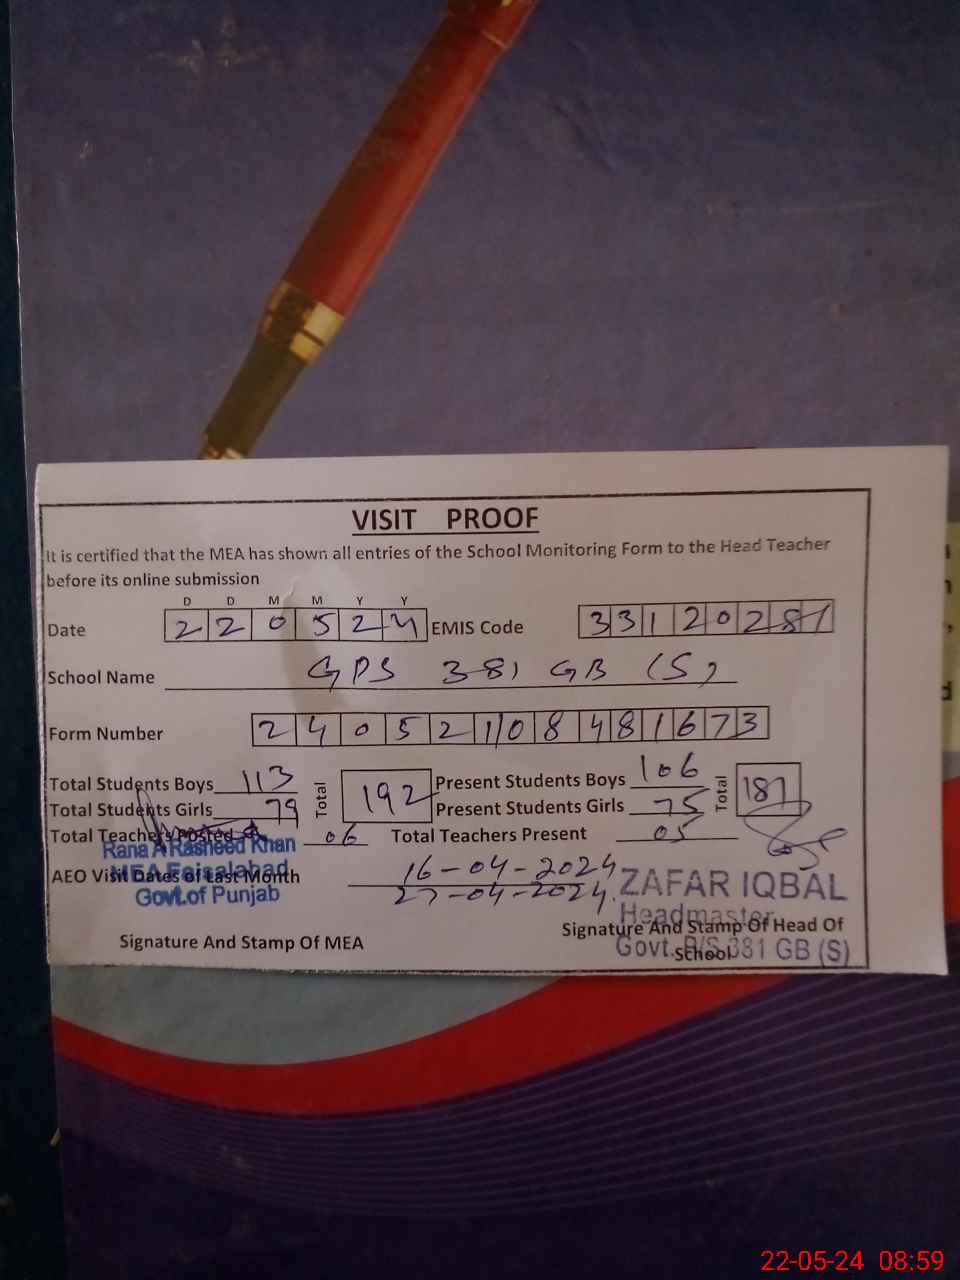 VISIT PROOF
It is certified that the MEA has shown all entries of the School Monitoring Form to the Head Teacher
before its online submission
D D M M Y Y
Date 2 2 0 5 2 4 EMIS Code 3 3 1 2 0 2 8 1
School Name GPS 381 GB (S)
Form Number 2 4 0 5 2 1 0 8 4 8 1 6 7 3
Total Students Boys 113 Total 192 Present Students Boys 106 Total 181
Total Students Girls 79 Present Students Girls 75
Total Teachers Posted 06 Total Teachers Present 05
Rana A Rasheed Khan
MEA Faisalabad
Govt.of Punjab
AEO Visit Dates of Last Month 16-04-2024
27-04-2024.
ZAFAR IQBAL
Headmaster
Govt. P/S 381 GB (S)
Signature And Stamp Of MEA
Signature And Stamp Of Head Of
School
22-05-24 08:59